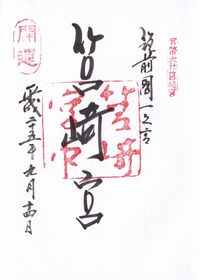 官幣大社筥崎宮
筑前國一之宮
筥崎宮
開運
平成二十五年九月十四日